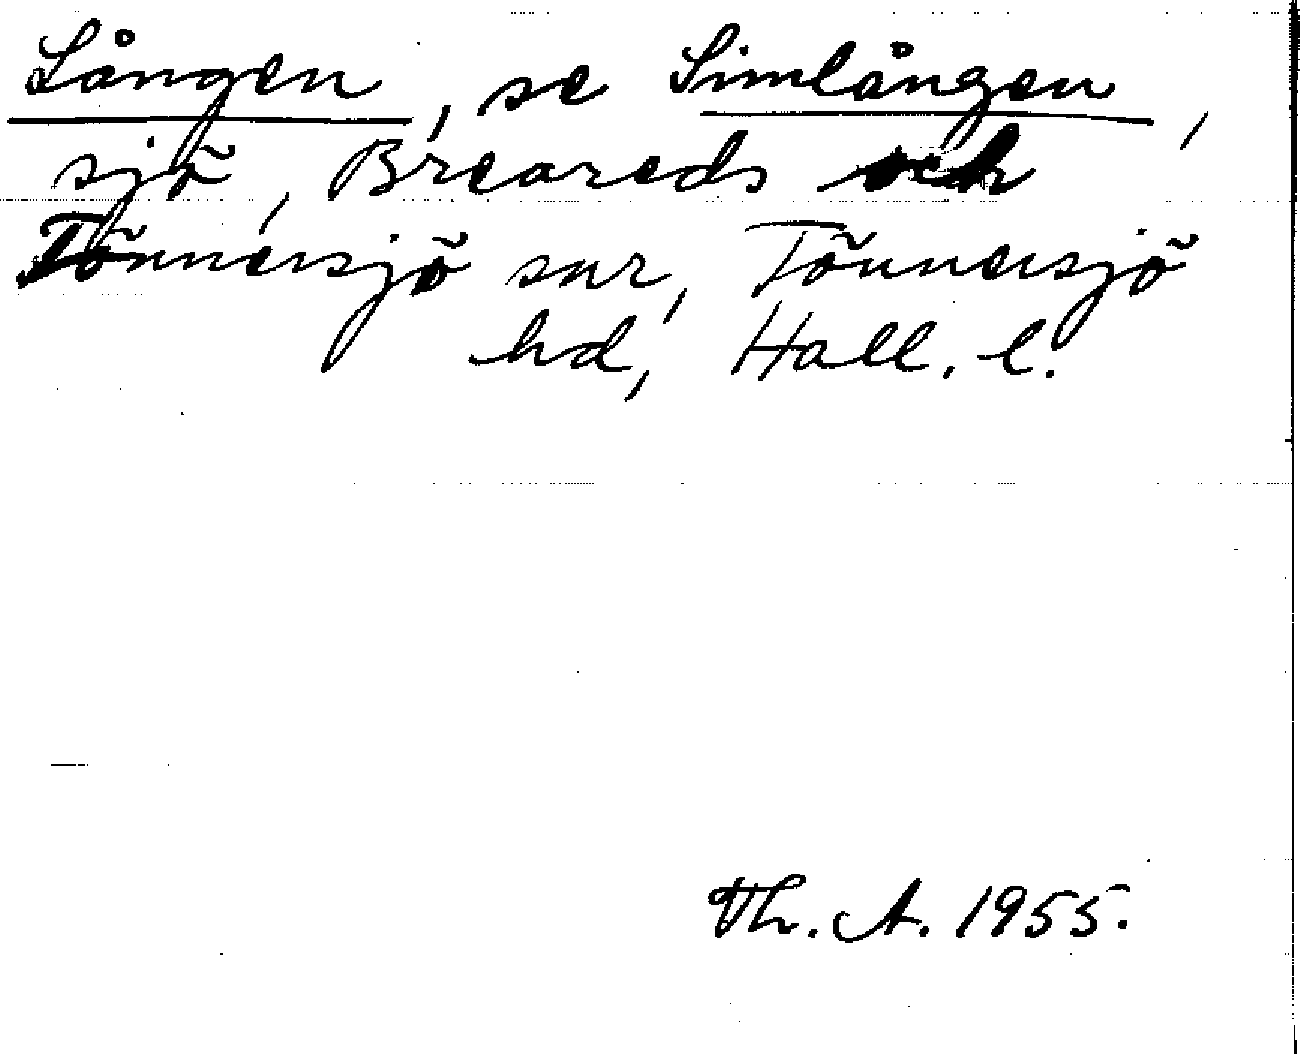 Lången, se Simlången,
sjö, Breareds och
Tönnersjö snr, Tönnersjö
hd, Hall. l.
Th. A. 1955.